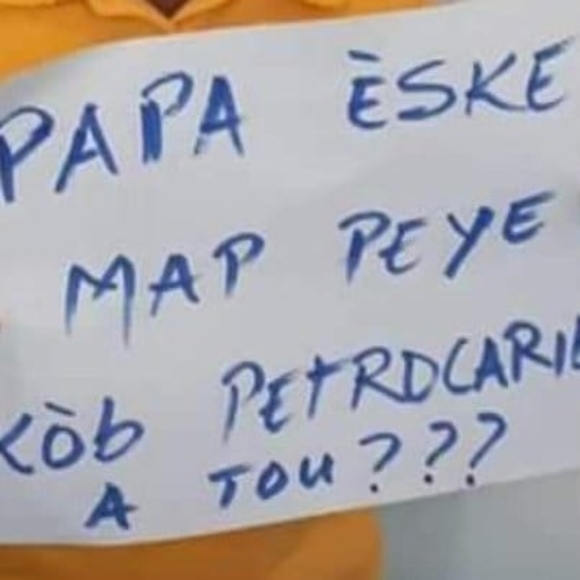 PAPA ÈSKE
MAP PEYE
KÒB PETROCARIB
A TOU???